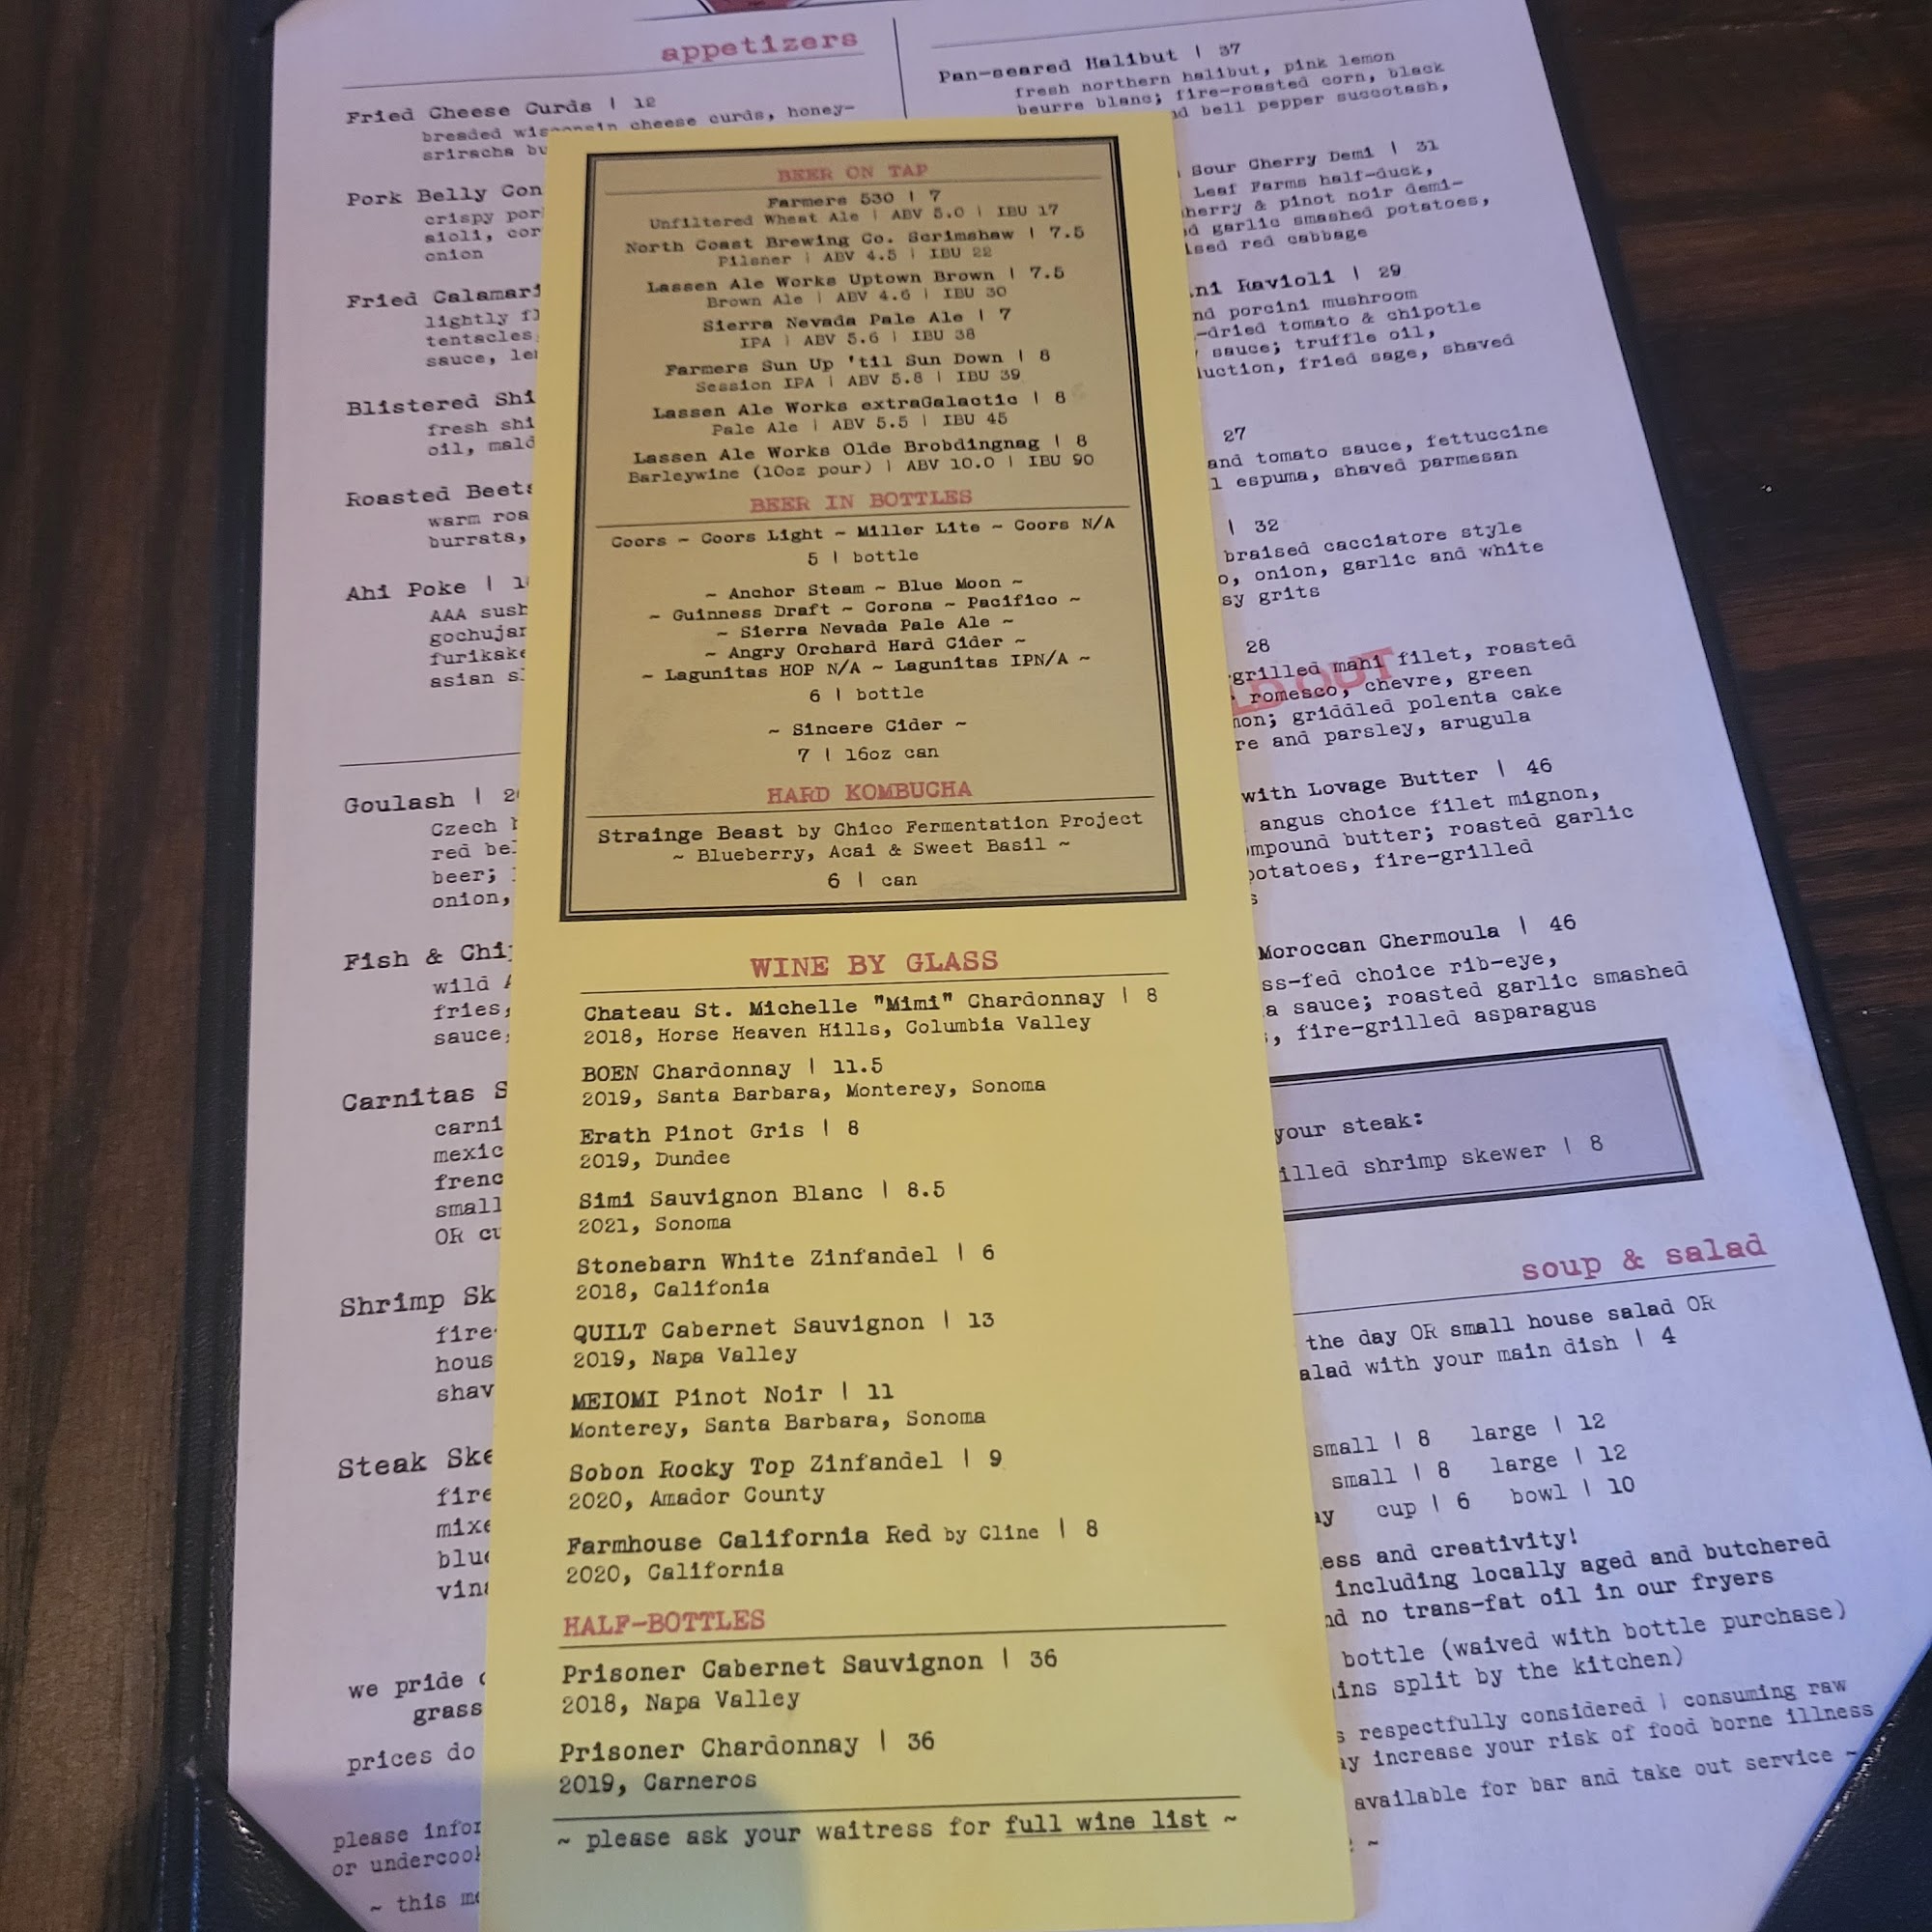 appetizers
Fried Cheese Curds | 12
breaded wisconsin cheese curds, honey-
sriracha
Pork Belly
crispy
aioli,
onion
Fried Calamari
lightly
tentacles
sauce,
Blistered
fresh
oil,
Roasted Beets
warm
burrata,
Ahi Poke |
AAA
furikake
asian
Goulash |
Czech
red
beer;
onion,
Fish &
wild
fries,
sauce,
Carnitas
small
OR
Shrimp
Steak
we pride
prices do
please
or
~ this
BEER ON TAP
Farmers 530 | 7
Unfiltered Wheat Ale | ABV 5.0 | IBU 17
North Coast Brewing Co. Scrimshaw | 7.5
Pilsner | ABV 4.5 | IBU 22
Lassen Ale Works Uptown Brown | 7.5
Brown Ale | ABV 4.6 | IBU 30
Sierra Nevada Pale Ale | 7
IPA | ABV 5.6 | IBU 38
Farmers Sun Up 'til Sun Down | 8
Session IPA | ABV 5.8 | IBU 39
Lassen Ale Works extraGalactic | 8
Pale Ale | ABV 5.5 | IBU 45
Lassen Ale Works Olde Brobdingnag | 8
Barleywine (10oz pour) | ABV 10.0 | IBU 90
BEER IN BOTTLES
Coors ~ Coors Light ~ Miller Lite ~ Coors N/A
5 | bottle
~ Anchor Steam ~ Blue Moon ~
~ Guinness Draft ~ Corona ~ Pacifico ~
~ Sierra Nevada Pale Ale ~
~ Angry Orchard Hard Cider ~
~ Lagunitas HOP N/A ~ Lagunitas IPN/A ~
6 | bottle
~ Sincere Cider ~
7 | 16oz can
HARD KOMBUCHA
Strainge Beast by Chico Fermentation Project
~ Blueberry, Acai & Sweet Basil ~
6 | can
WINE BY GLASS
Chateau St. Michelle "Mimi" Chardonnay | 8
2018, Horse Heaven Hills, Columbia Valley
BOEN Chardonnay | 11.5
2019, Santa Barbara, Monterey, Sonoma
Erath Pinot Gris | 8
2019, Dundee
Simi Sauvignon Blanc | 8.5
2021, Sonoma
Stonebarn White Zinfandel | 6
2018, Califonia
QUILT Cabernet Sauvignon | 13
2019, Napa Valley
MEIOMI Pinot Noir | 11
Monterey, Santa Barbara, Sonoma
Sobon Rocky Top Zinfandel | 9
2020, Amador County
Farmhouse California Red by Cline | 8
2020, California
HALF-BOTTLES
Prisoner Cabernet Sauvignon | 36
2018, Napa Valley
Prisoner Chardonnay | 36
2019, Carneros
~ please ask your waitress for full wine list ~
Pan-seared Halibut | 37
fresh northern halibut, pink lemon
beurre blanc; fire-roasted corn, black
bell pepper succotash,
Sour Cherry Demi | 31
Leaf Farms half-duck,
cherry & pinot noir demi-
garlic smashed potatoes,
red cabbage
Ravioli | 29
porcini mushroom
-dried tomato & chipotle
sauce; truffle oil,
fried sage, shaved
27
and tomato sauce, fettuccine
espuma, shaved parmesan
| 32
braised cacciatore style
onion, garlic and white
grits
28
grilled mahi filet, roasted
romesco, chevre, green
griddled polenta cake
and parsley, arugula
OUT
with Lovage Butter | 46
angus choice filet mignon,
butter; roasted garlic
potatoes, fire-grilled
Moroccan Chermoula | 46
choice rib-eye,
sauce; roasted garlic smashed
fire-grilled asparagus
your steak:
shrimp skewer | 8
soup & salad
the day OR small house salad OR
salad with your main dish | 4
small | 8 large | 12
small | 8 large | 12
cup | 6 bowl | 10
and creativity!
including locally aged and butchered
no trans-fat oil in our fryers
bottle (waived with bottle purchase)
split by the kitchen)
respectfully considered | consuming raw
increase your risk of food borne illness
available for bar and take out service ~
~